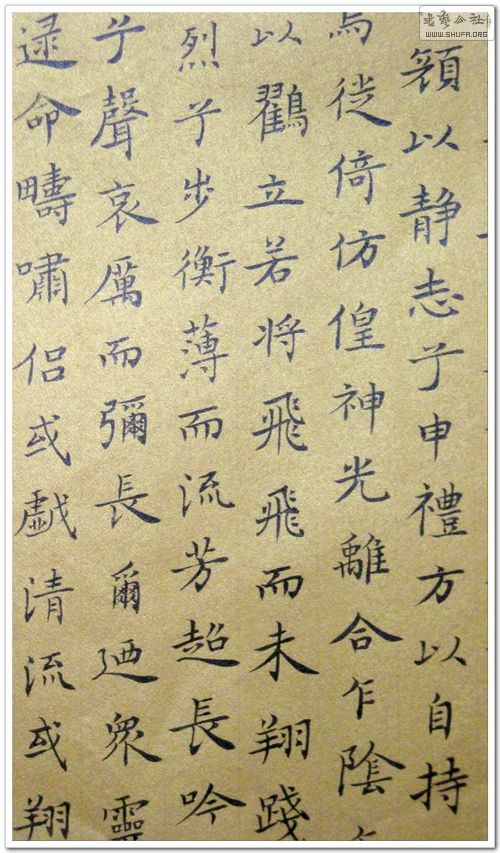 書藝公社
WWW.SHUFA.ORG
顔以静志兮申禮方以自持
焉徙倚仿偟神光離合乍陰乍
以鸛立若将飛飛而未翔踐
烈兮步衡薄而流芳超長吟
兮聲哀厲而彌長爾廼衆靈
逯命疇嘯侣或戱清流或翔